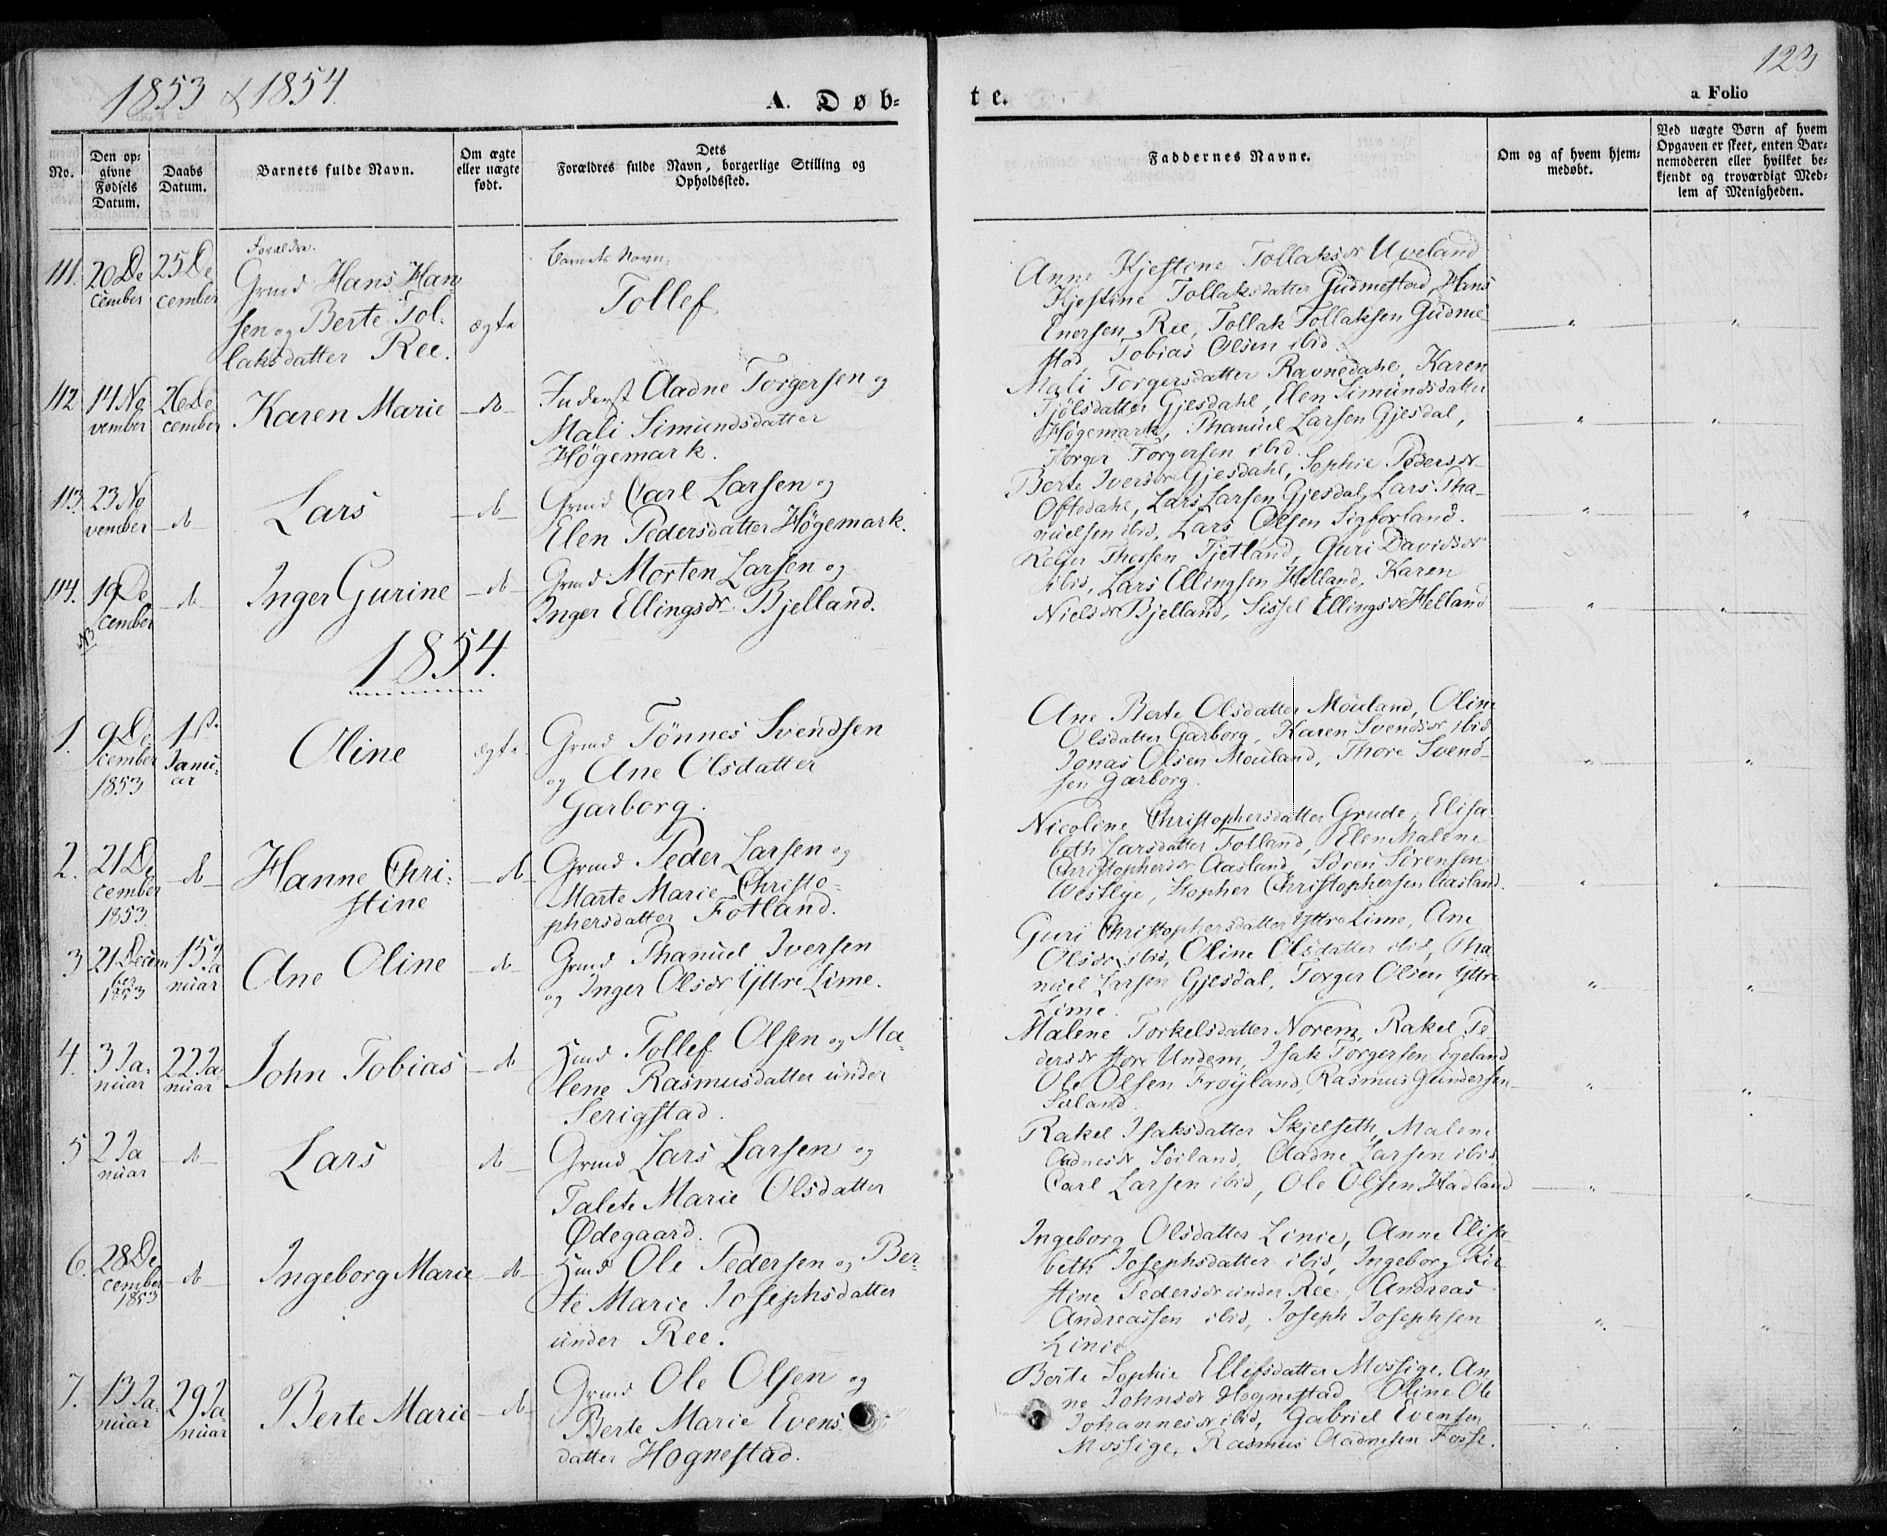 1853 & 1854.
123
A. Døb-
te.
a Folio
No.
Den op-
givne
Fødsels
Datum.
Daabs
Datum.
Barnets fulde Navn.
Om ægte
eller uægte
født.
Dets
Forældres fulde Navn, borgerlige Stilling og
Opholdssted.
Faddernes Navne.
Om og af hvem hjem-
medøbt.
Ved uægte Børn af hvem
Opgaven er skeet, enten Bar-
nemoderen eller hvilket be-
kjendt og troværdigt Med-
lem af Menigheden.
111.
20 De
cember
25 De
cember
Forældre.
Grmd Hans Han
sen og Berte Tol-
laksdatter Ree.
ægte
Barnets Navn.
Tollef
Anne Kjestine Tollaksdr Uveland
Kjestine Tollaksdatter Gudmestad, Hans
Enersen Ree, Tollak Tollaksen Gudme
stad Tobias Olsen ibid.
112
14 No
vember
26 De
cember
Karen Marie
do
Inderst Aadne Torgersen og
Mali Simundsdatter
Høgemark.
Mali Torgersdatter Ravnedahl, Karen
Tjølsdatter Gjesdahl, Elen Simundsdatter
Høgemark, Thanuel Larsen Gjesdal,
Torger Torgersen ibid.
113.
23 No
vember
do
Lars
do
Grmd Carl Larsen og
Elen Pedersdatter Høgemark.
Berte Iversdr Gjesdahl, Sophie Pedersdr
Oftedahl, Lars Larsen Gjesdal, Lars Tha-
nuelsen ibid, Lars Olsen Sigforland.
114.
19 De
cember
do
Inger Gurine
do
Grmd Morten Larsen og
Inger Ellingsdr Bjelland.
Reger Thorsen Tjetland, Guri Davidsdr
ibid, Lars Ellingsen Helland, Karen
Nielsdr Bjelland, Sissel Ellingsdr Helland
1854.
1.
9 De
cember
1853
1ste
Janu-
ar
Oline
ægte
Grmd Tønnes Svendsen
og Ane Olsdatter
Garborg.
Ane Berte Olsdatter Mouland, Oline
Olsdatter Garborg, Karen Svendsdr ibid
Jonas Olsen Mouland, Thore Svend-
sen Garborg.
2.
21 De
cember
1853
do
Hanne Chri-
stine
do
Grmd Peder Larsen og
Marte Marie Christo-
phersdatter Fotland.
Nicoline Christophersdatter Grude, Elisa-
beth Larsdatter Fotland, Elen Malene
Christophersdr Aasland, Søren Sørensen
Westlye, Stopher Christophersen Aasland.
3
21 Decem
ber
1853
15 Ja
nuar
Ane Oline
do
Grmd Thanuel Iversen
og Inger Olsdr Yttre Lime.
Guri Christophersdatter Yttre Lime, Ane
Olsdr ibid, Oline Olsdatter ibid, Tha
nuel Larsen Gjesdal, Torger Olsen Yttre
Lime.
4.
3 Ja-
nuar
22 Ja
nuar
John Tobias
do
Hmd Tollef Olsen og Ma-
lene Rasmusdatter under
Serigstad.
Malene Torkelsdatter Norem, Rakel Pe
dersdr store Undem, Isak Torgersen Egeland
Ole Olsen Frøyland, Rasmus Gundersen
Soland.
5
2 Ja
nuar
do
Lars
do
Grmd Lars Larsen og
Talete Marie Olsdatter
Ødegaard.
Rakel Isaksdatter Skjelseth, Malene
Aadnesdr Søiland, Aadne Larsen ibid
Carl Larsen ibid, Ole Olsen Hadland
6.
28 De
cember
1853
do
Ingeborg Marie
do
Hmd Ole Pedersen og Ber-
te Marie Josephsdatter
under Ree.
Ingeborg Olsdatter Linie, Anne Elisa
beth Josephsdatter ibid, Ingeborg Kir
stine Pedersdr under Ree, Andreas
Andreassen ibid, Joseph Josephsen
Linie
7.
13 Ja-
nuar
29 Ja-
nuar
Berte Marie
do
Grmd Ole Olsen og
Berte Marie Evens
datter Hognestad.
Berte Sophie Ellefsdatter Mossige, An
ne Johnsdr Hognestad, Oline Ole
Johannesdr ibid, Gabriel Evensen
Mossige, Rasmus Aadnesen Fosse.